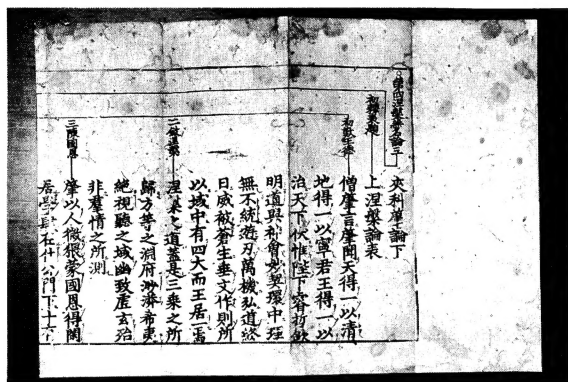 夾科肇論下
第四涅槃無名論三
上涅槃論表
僧肇言肇聞天得一以清
地得一以寧君王得一以
治天下伏惟陛下睿哲欽
明道與神會妙契環中理
無不統遊刃萬機弘道終
日威被蒼生垂文作則所
以域中有四大而王居一焉
涅槃之道蓋是三乘之所
歸方等之淵府渺漭希夷
絕視聽之域幽致虛玄殆
非羣情之所測
三陳國恩
肇以人微猥蒙國恩得閑
居學肆在什公門下十有